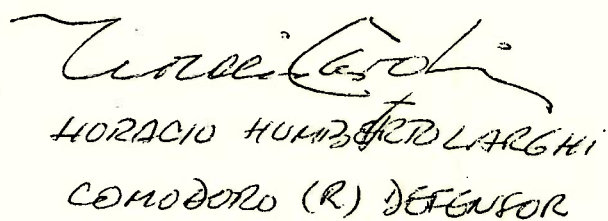 HORACIO HUMBERTO LARGHI
COMODORO (R) DEFENSOR